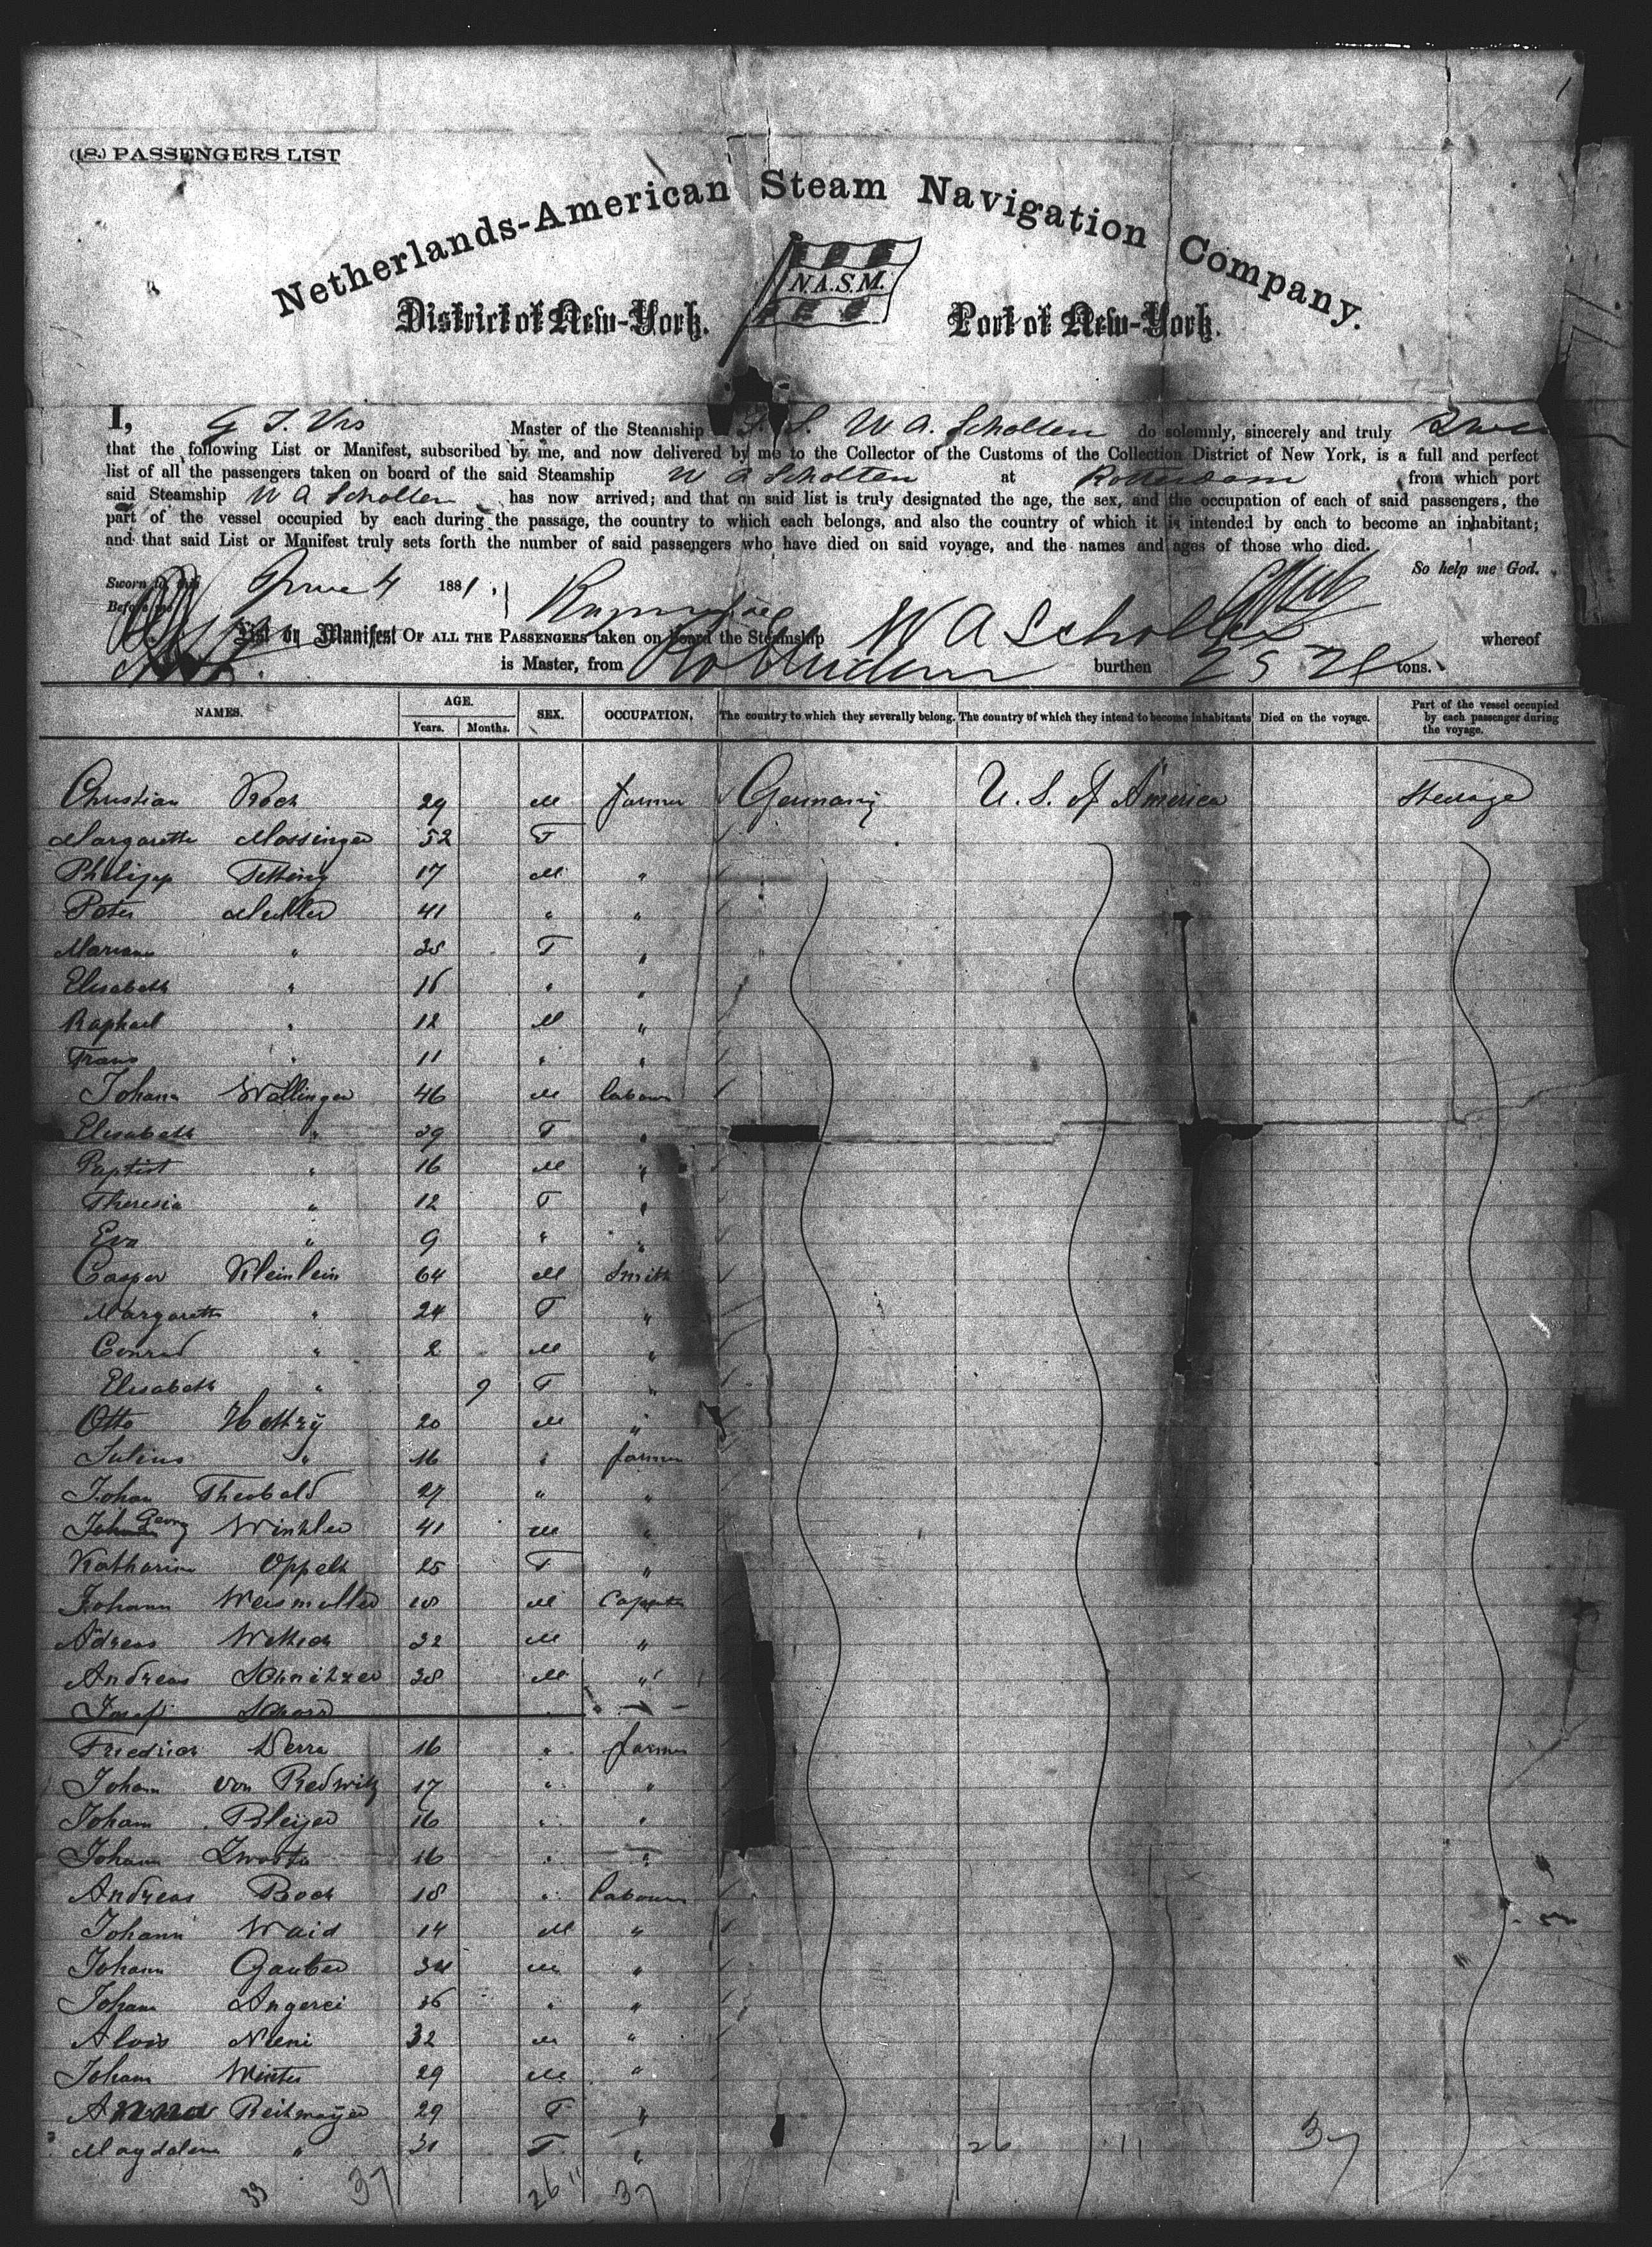 1
(18.) PASSENGERS LIST
Netherlands-American Steam Navigation Company.
N.A.S.M.
District of New-York. Port of New-York.
I, G J Vis Master of the Steamship S. S. W. A. Scholten do solemnly, sincerely and truly
that the following List or Manifest, subscribed by me, and now delivered by me to the Collector of the Customs of the Collection District of New York, is a full and perfect
list of all the passengers taken on board of the said Steamship W A Scholten at Rotterdam from which port
said Steamship W A Scholten has now arrived; and that on said list is truly designated the age, the sex, and the occupation of each of said passengers, the
part of the vessel occupied by each during the passage, the country to which each belongs, and also the country of which it is intended by each to become an inhabitant;
and that said List or Manifest truly sets forth the number of said passengers who have died on said voyage, and the names and ages of those who died.
So help me God.
Sworn to this June 4 1881.
Before me
List or Manifest OF ALL THE PASSENGERS taken on board the Steamship W A Scholten whereof
is Master, from Rotterdam burthen 2528 tons.
NAMES. AGE. Years. Months. SEX. OCCUPATION. The country to which they severally belong. The country of which they intend to become inhabitants Died on the voyage. Part of the vessel occupied by each passenger during the voyage.
Christian Koch 29 M farmer Germany U. S. of America Steerage
Margarethe Mossinger 52 F
Philipp Tettering 17 M "
Peter Muller 41 " "
Mariana " 38 F "
Elisabeth " 16 " "
Raphael " 12 M "
Frans " 11 " "
Johann Wallinger 46 M labour
Elisabeth " 39 F "
Baptist " 16 M "
Theresia " 12 F "
Eva " 9 " "
Casper Kleinlein 64 M Smith
Margareth " 24 F "
Conrad " 2 M "
Elisabeth " 9 F "
Otto Hettzy 20 M "
Julius " 16 " farmer
Johan Theobald 27 " "
Johann Georg Winkler 41 M "
Katharine Oppelt 25 F "
Johann Weismuller 18 M
Adreas 32 M "
Andreas Schnitzer 38 M "
Josef Schorr
Friedrich Derra 16 " farmer
Johann von Redwitz 17 " "
Johann Bleijer 16 " "
Johann 16 " "
Andreas Bock 18 " labourer
Johann Waid 14 M "
Johann Gauber 34 M "
Johann Angerei 36 " "
Alois Neeni 32 M "
Johann Winter 29 M "
Anna Reitmayer 29 F "
Magdalena " 31 F " 26 11 37
39 37 26 11 37